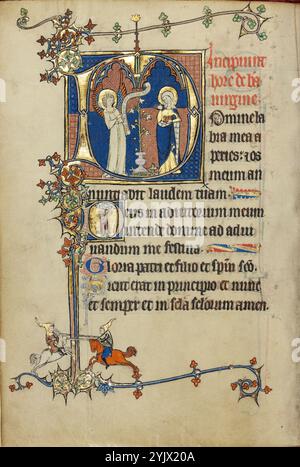 Incipiunt
hore de ba
uirgine
Domine la
bia mea a
peries: & os
meum an
nuntiabit laudem tuam.
Deus in adiutorium meum
intende domine ad adiu
uandum me festina.
Gloria patri et filio et spui sco.
Sicut erat in principio et nunc
et semper et in scła sclorum amen.